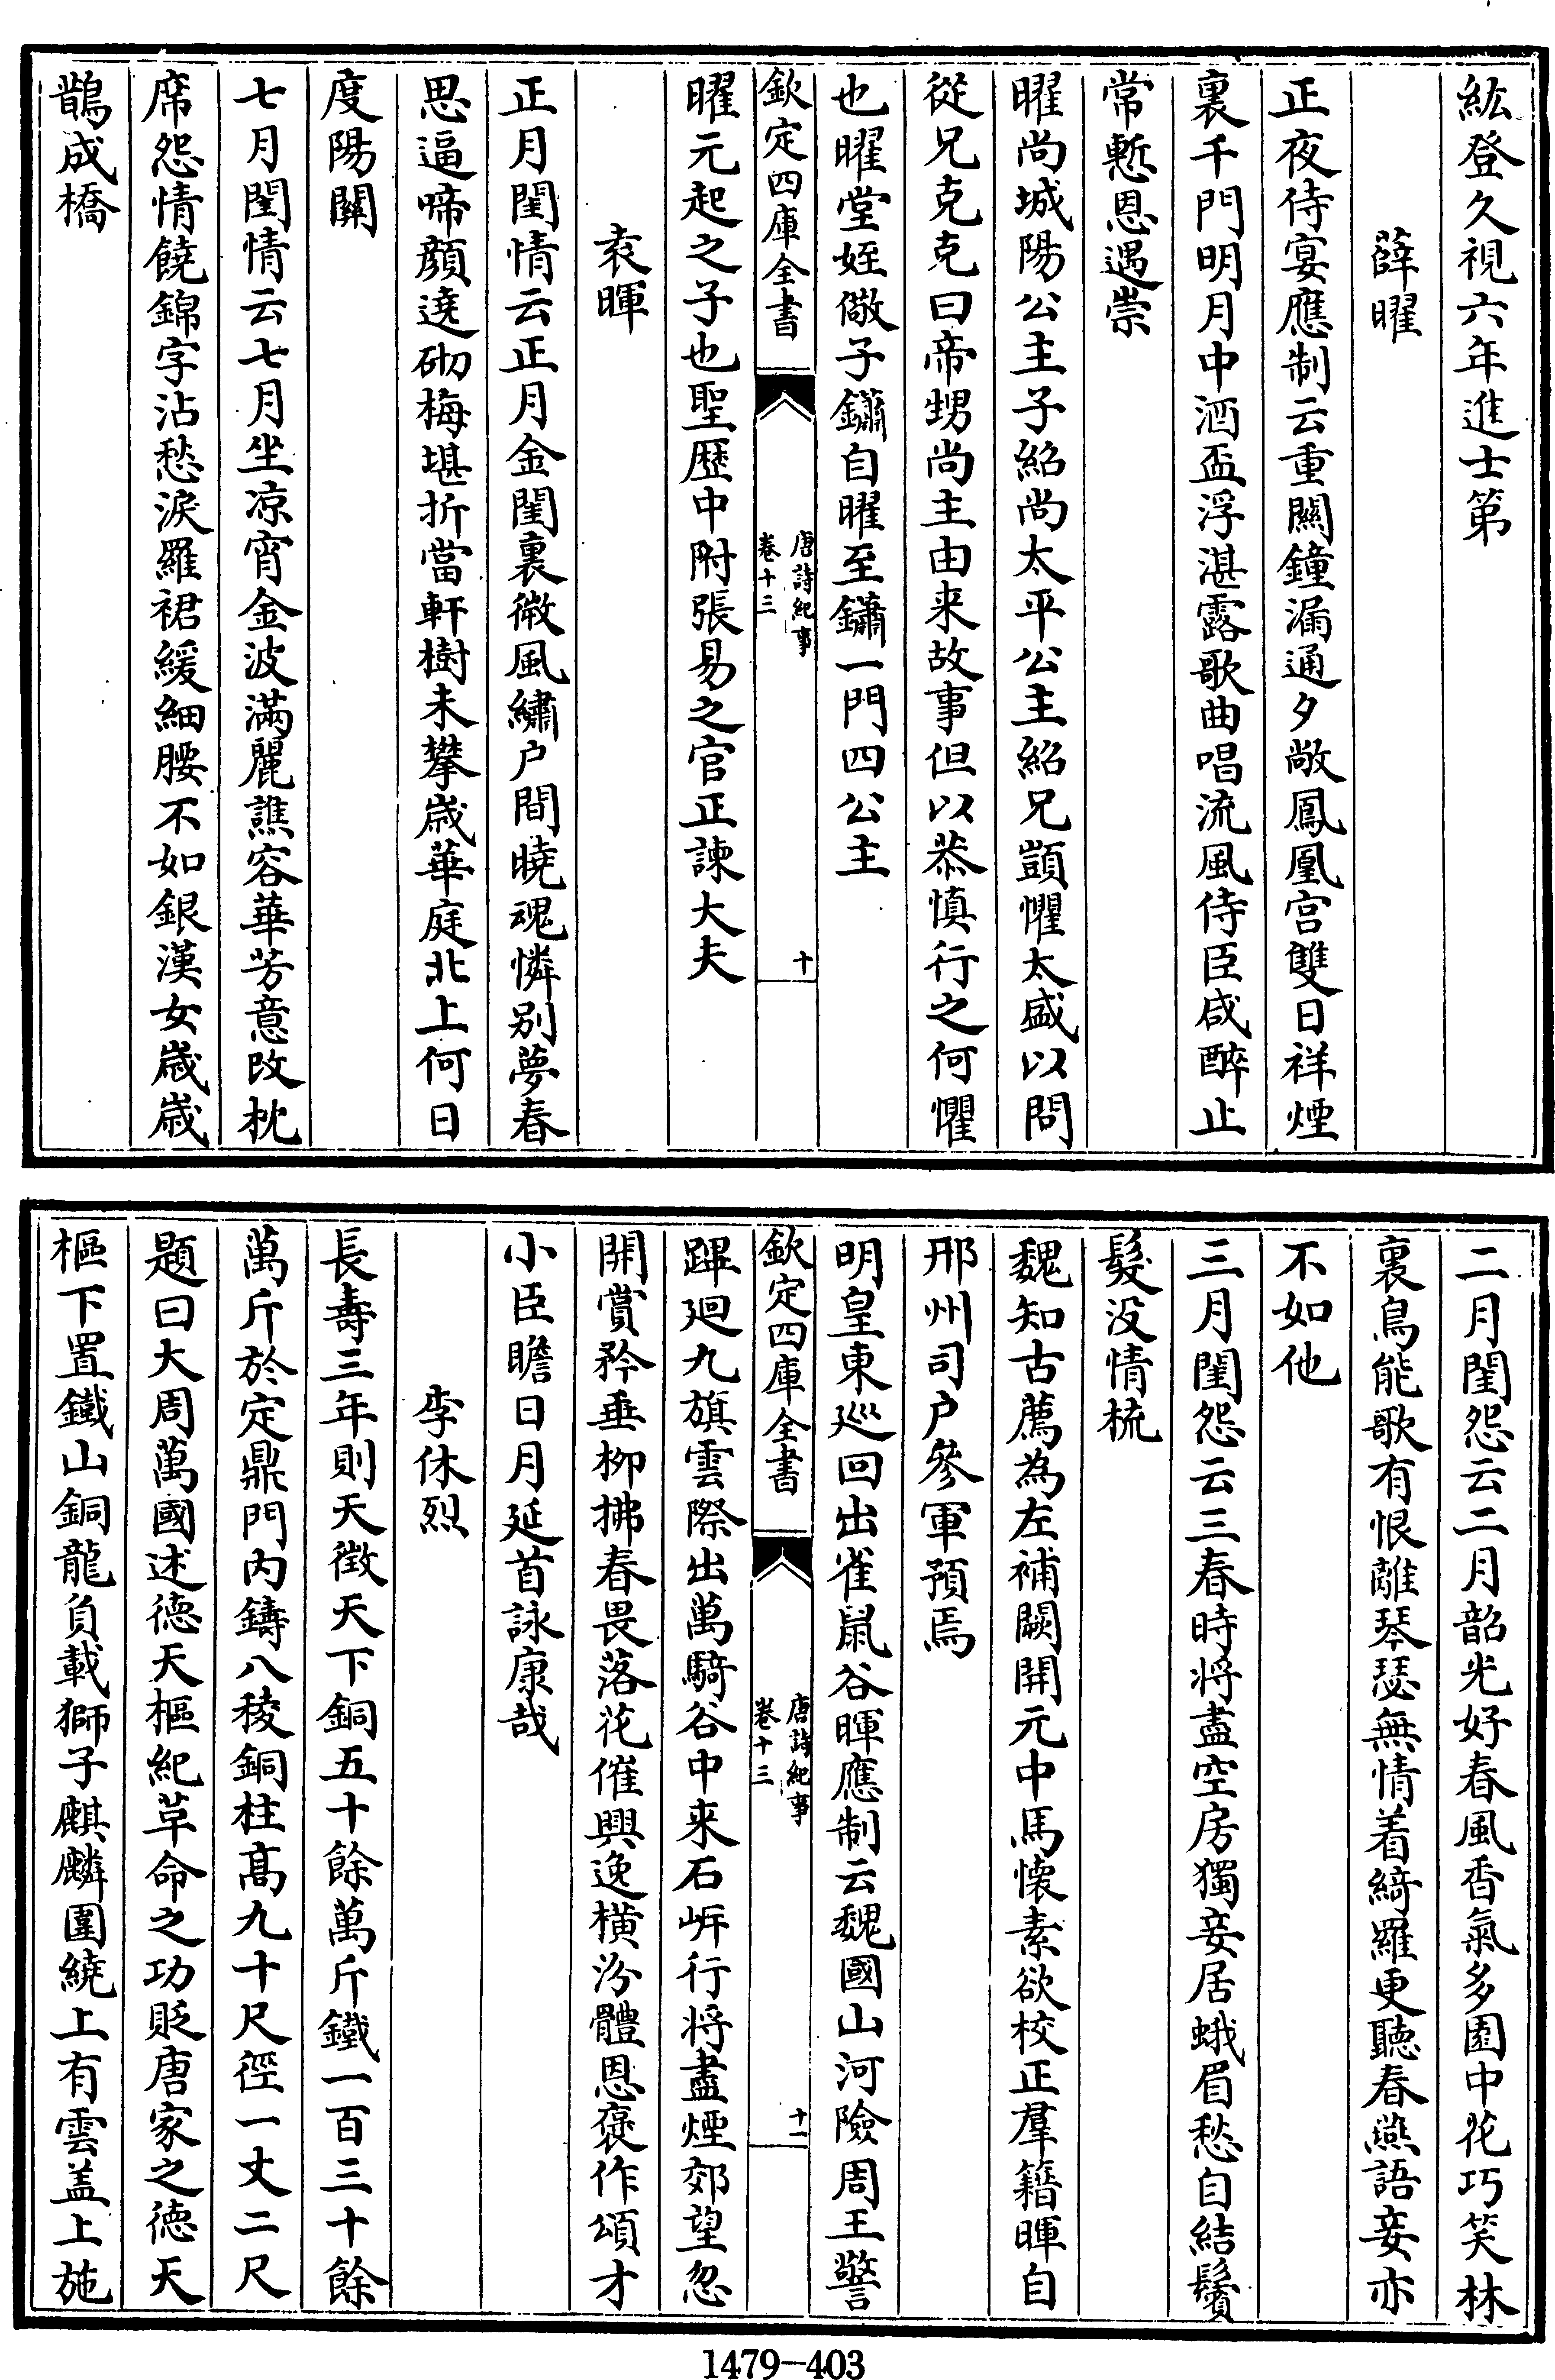 紘登久視六年進士第
薛曜
正夜侍宴應制云重關鐘漏通夕敞鳳凰宫雙日祥煙
裏千門明月中酒盃浮湛露歌曲唱流風侍臣咸醉止
常慙恩遇崇
曜尚城陽公主子紹尚太平公主紹兄顗懼太盛以問
從兄克克曰帝甥尚主由来故事但以恭慎行之何懼
也曜堂姪儆子鏽自曜至鏽一門四公主
欽定四庫全書
唐詩紀事
卷十三
十
曜元起之子也聖歴中附張易之官正諫大夫
袁暉
正月閨情云正月金閨裏微風繡户間曉魂憐别夢春
思逼啼顔遶砌梅堪折當軒樹未攀嵗華庭北上何日
度陽關
七月閨情云七月坐凉宵金波滿麗譙容華芳意改枕
席怨情饒錦字沾愁淚羅裙緩細腰不如銀漢女嵗嵗
鵲成橋
二月閨怨云二月韶光好春風香氣多園中花巧笑林
裏鳥能歌有恨離琴瑟無情着綺羅更聽春燕語妾亦
不如他
三月閨怨云三春時将盡空房獨妾居蛾眉愁自結鬢
髮没情梳
魏知古薦為左補闕開元中馬懐素欲校正羣籍暉自
邢州司户參軍預焉
明皇東巡回出雀鼠谷暉應制云魏國山河險周王警
欽定四庫全書
唐詩紀事
卷十三
十一
蹕廻九旗雲際出萬騎谷中来石㟁行将盡煙郊望忽
開賞矜垂柳拂春畏落花催興逸横汾體恩褒作頌才
小臣瞻日月延首詠康哉
李休烈
長壽三年則天徴天下銅五十餘萬斤鐵一百三十餘
萬斤於定鼎門内鑄八稜銅柱髙九十尺徑一丈二尺
題曰大周萬國述德天樞紀草命之功貶唐家之德天
樞下置鐵山銅龍負載獅子麒麟圍繞上有雲盖上施
1479-403